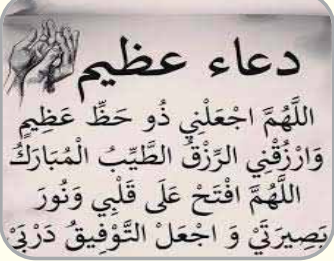 دعاء عظيم
اللَّهُمَّ اجْعَلْنِي ذُو حَظِّ عَظِيمٍ
وَارْزُقْنِي الرِّزْقُ الطَّيِّبُ الْمُبَارَكُ
اللَّهُمَّ افْتَحْ عَلَى قَلْبِي وَنُورَ
بَصِيرَتَيْ وَ اجْعَلْ التَّوْفِيقُ دَرْبَيْ